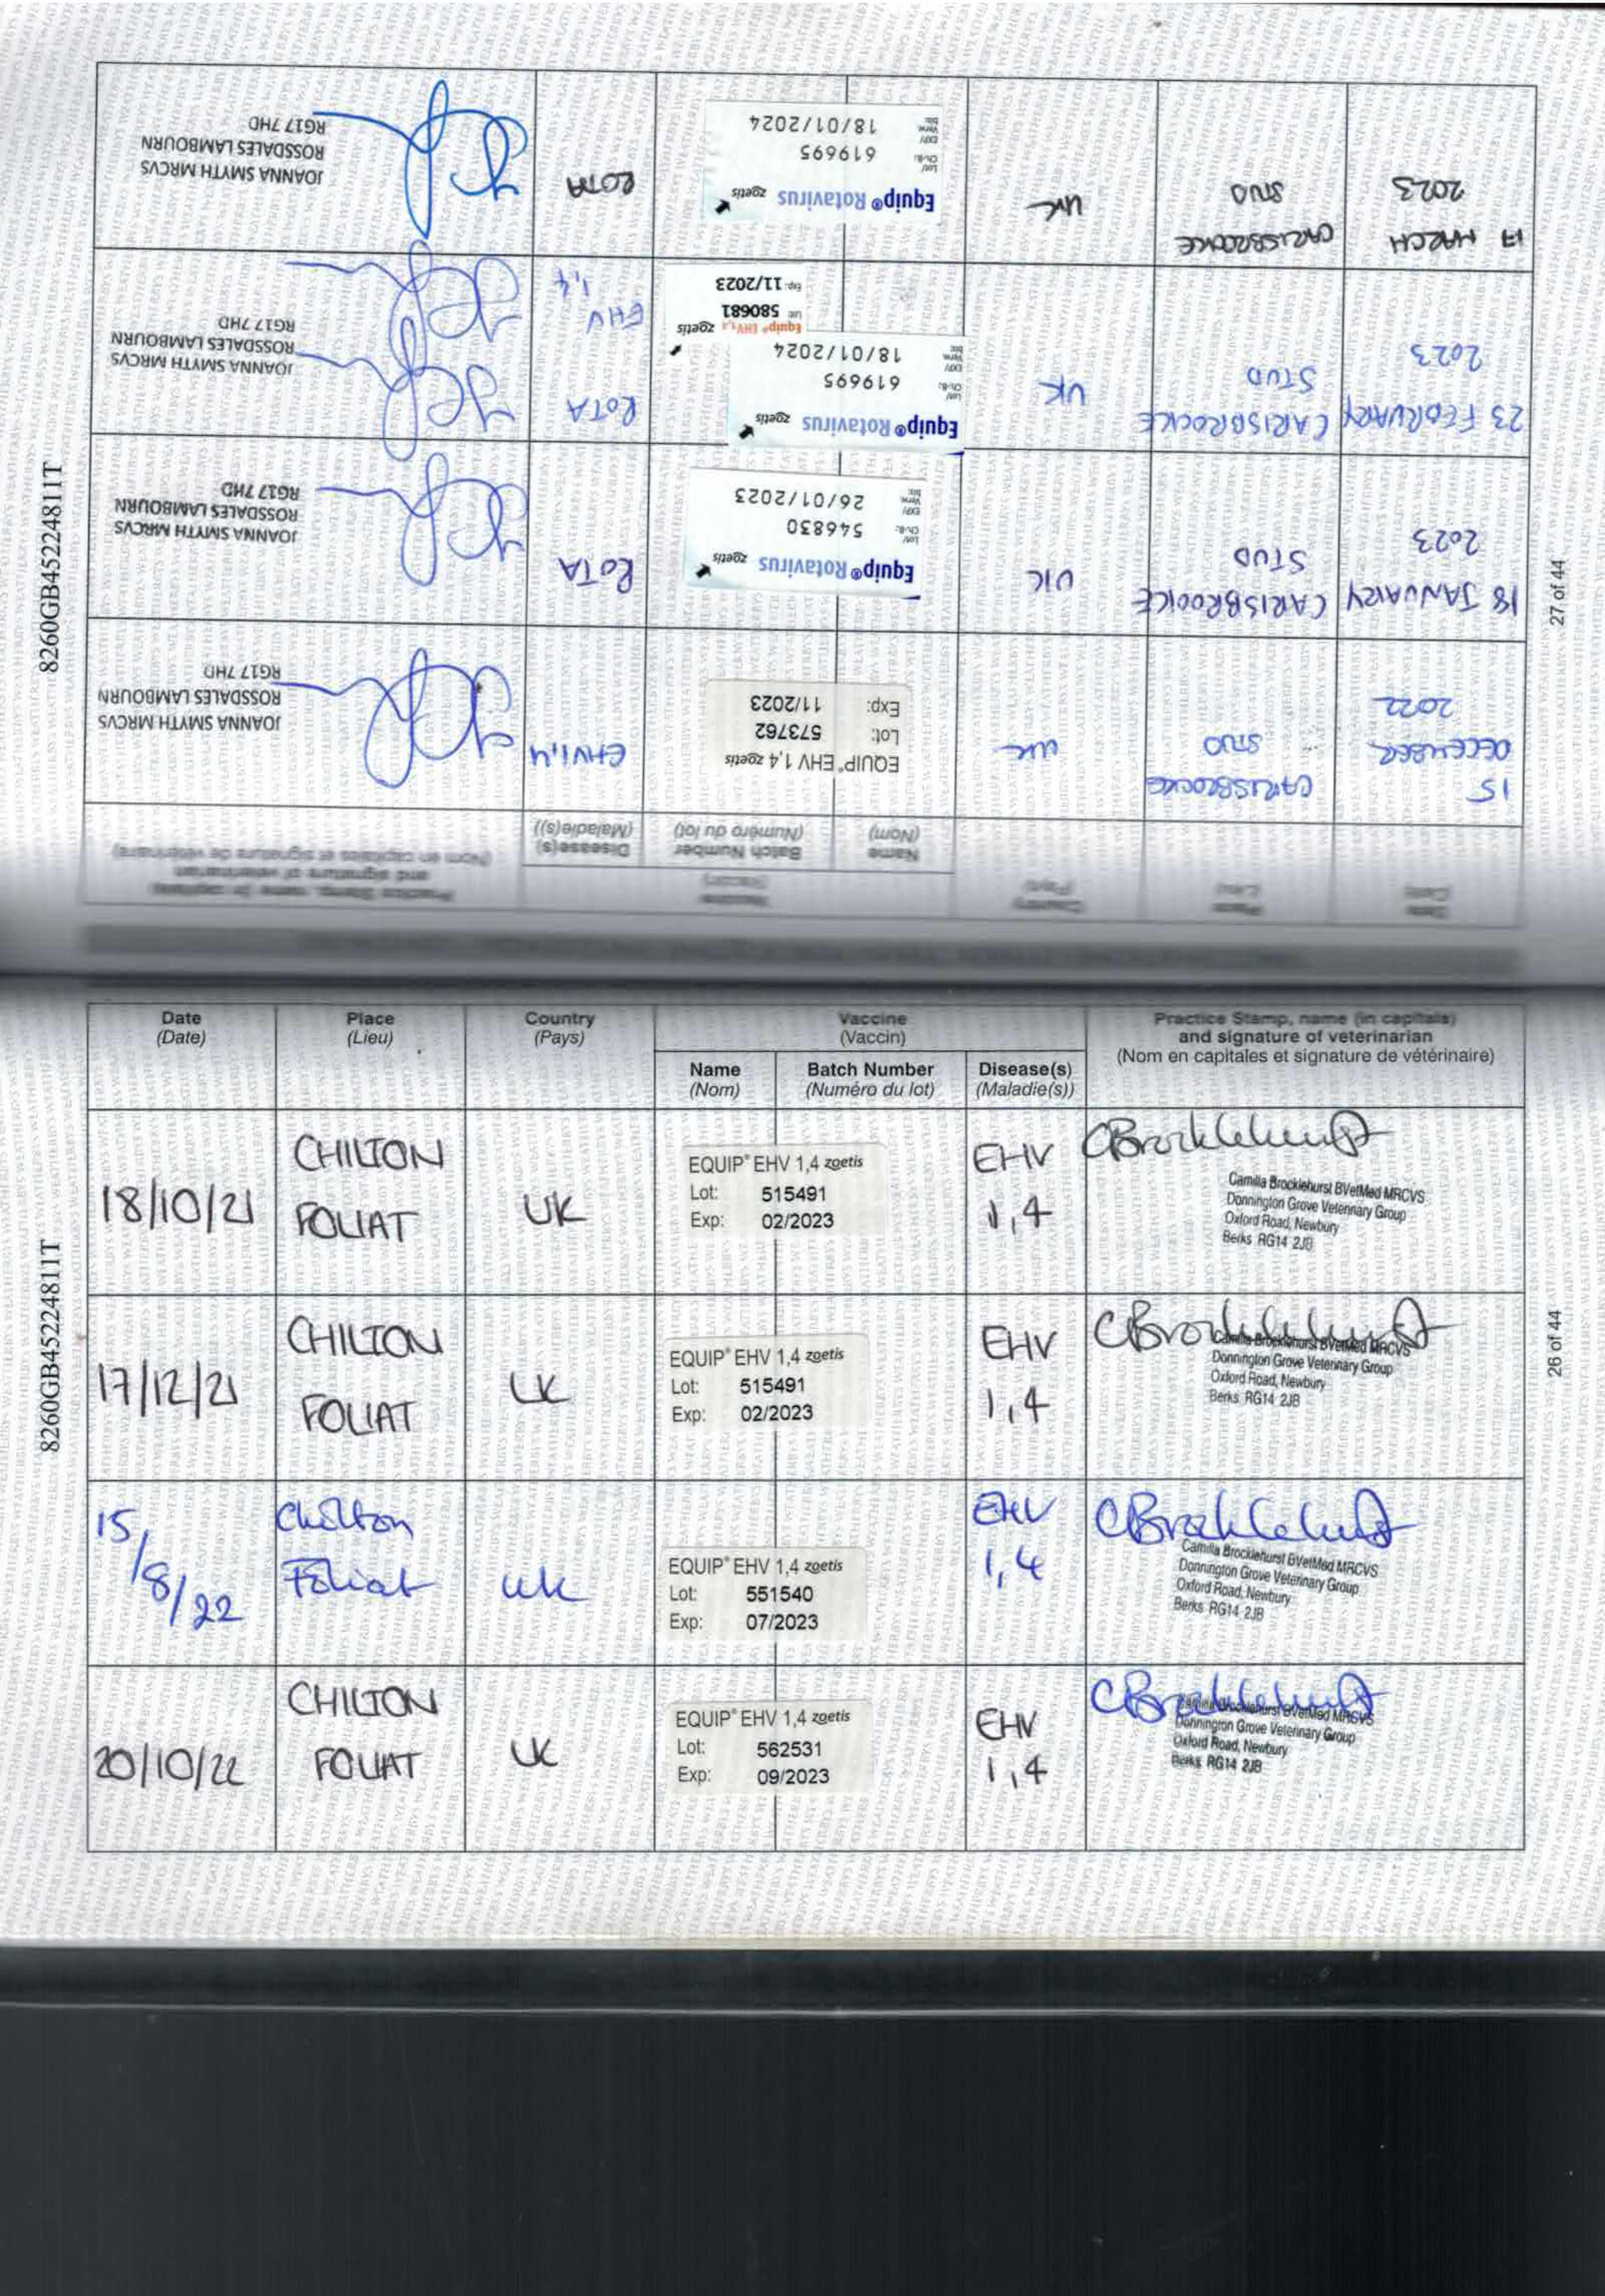 8260GB45224811T
26 of 44
Date
(Date)
Place
(Lieu)
Country
(Pays)
Vaccine
(Vaccin)
Name
(Nom)
Batch Number
(Numéro du lot)
Disease(s)
(Maladie(s))
Practice Stamp, name (in capitals)
and signature of veterinarian
(Nom en capitales et signature de vétérinaire)
18/10/21
CHILTON
FOLIAT
UK
EQUIP® EHV 1,4 zoetis
Lot: 515491
Exp: 02/2023
EHV
1,4
CBrocklehurst
Camilla Brocklehurst BVetMed MRCVS
Donnington Grove Veterinary Group
Oxford Road, Newbury
Berks RG14 2JB
17/12/21
CHILTON
FOLIAT
UK
EQUIP® EHV 1,4 zoetis
Lot: 515491
Exp: 02/2023
EHV
1,4
CBrocklehurst
Camilla Brocklehurst BVetMed MRCVS
Donnington Grove Veterinary Group
Oxford Road, Newbury
Berks RG14 2JB
15/8/22
Chilton
Foliat
UK
EQUIP® EHV 1,4 zoetis
Lot: 551540
Exp: 07/2023
EHV
1,4
CBrocklehurst
Camilla Brocklehurst BVetMed MRCVS
Donnington Grove Veterinary Group
Oxford Road, Newbury
Berks RG14 2JB
20/10/22
CHILTON
FOLIAT
UK
EQUIP® EHV 1,4 zoetis
Lot: 562531
Exp: 09/2023
EHV
1,4
CBrocklehurst
Camilla Brocklehurst BVetMed MRCVS
Donnington Grove Veterinary Group
Oxford Road, Newbury
Berks RG14 2JB
8260GB45224811T
27 of 44
Date
(Date)
Place
(Lieu)
Country
(Pays)
Vaccine
(Vaccin)
Name
(Nom)
Batch Number
(Numéro du lot)
Disease(s)
(Maladie(s))
Practice Stamp, name (in capitals)
and signature of veterinarian
(Nom en capitales et signature de vétérinaire)
15
DECEMBER
2022
CARISBROOKE
STUD
UK
EQUIP® EHV 1,4 zoetis
Lot: 573762
Exp: 11/2023
EHV1,4
JOANNA SMYTH MRCVS
ROSSDALES LAMBOURN
RG17 7HD
18 JANUARY
2023
CARISBROOKE
STUD
UK
Equip® Rotavirus zoetis
Lot/
Ch.-B.: 546830
EXP/
Verw.
bis: 26/01/2023
ROTA
JOANNA SMYTH MRCVS
ROSSDALES LAMBOURN
RG17 7HD
23 FEBRUARY
2023
CARISBROOKE
STUD
UK
Equip® Rotavirus zoetis
Lot/
Ch.-B.: 619695
EXP/
Verw.
bis: 18/01/2024
Equip® EHV 1,4 zoetis
Lot: 580681
Exp: 11/2023
ROTA
EHV
1,4
JOANNA SMYTH MRCVS
ROSSDALES LAMBOURN
RG17 7HD
17 MARCH
2023
CARISBROOKE
STUD
UK
Equip® Rotavirus zoetis
Lot/
Ch.-B.: 619695
EXP/
Verw.
bis: 18/01/2024
ROTA
JOANNA SMYTH MRCVS
ROSSDALES LAMBOURN
RG17 7HD